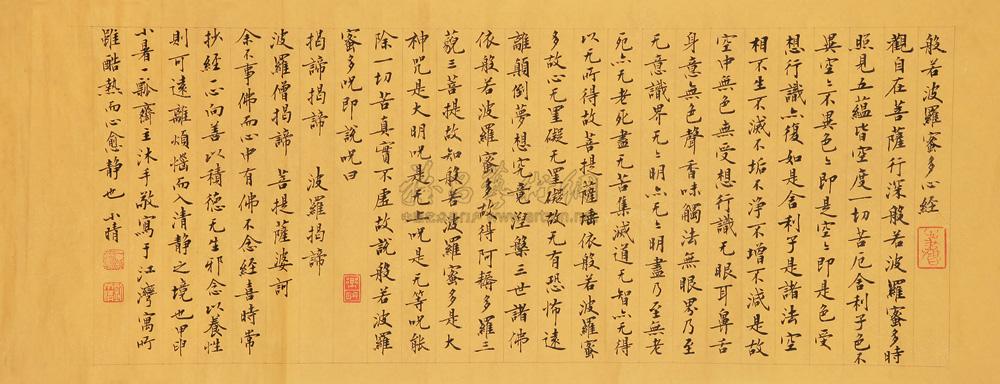 般若波羅蜜多心經
觀自在菩薩行深般若波羅蜜多時
照見五蘊皆空度一切苦厄舍利子色不
異空空不異色色即是空空即是色受
想行識亦復如是舍利子是諸法空
相不生不滅不垢不淨不增不減是故
空中無色無受想行識无眼耳鼻舌
身意無色聲香味觸法無眼界乃至
无意識界无无明亦无无明盡乃至無老
死亦无老死盡无苦集滅道无智亦无得
以无所得故菩提薩埵依般若波羅蜜
多故心无罣礙无罣礙故无有恐怖遠
離顛倒夢想究竟涅槃三世諸佛
依般若波羅蜜多故得阿耨多羅三
藐三菩提故知般若波羅蜜多是大
神咒是大明咒是无上咒是无等咒能
除一切苦真實不虛故說般若波羅
蜜多咒即說咒曰
揭諦揭諦 波羅揭諦
波羅僧揭諦 菩提薩婆訶
余不事佛而心中有佛不念經喜時常
抄經一心向善以積德无生邪念以養性
則可遠離煩惱而入清静之境也甲申
小暑一瓢齋主沐手敬寫于江灣寓所
雖酷熱而心愈静也 小晴